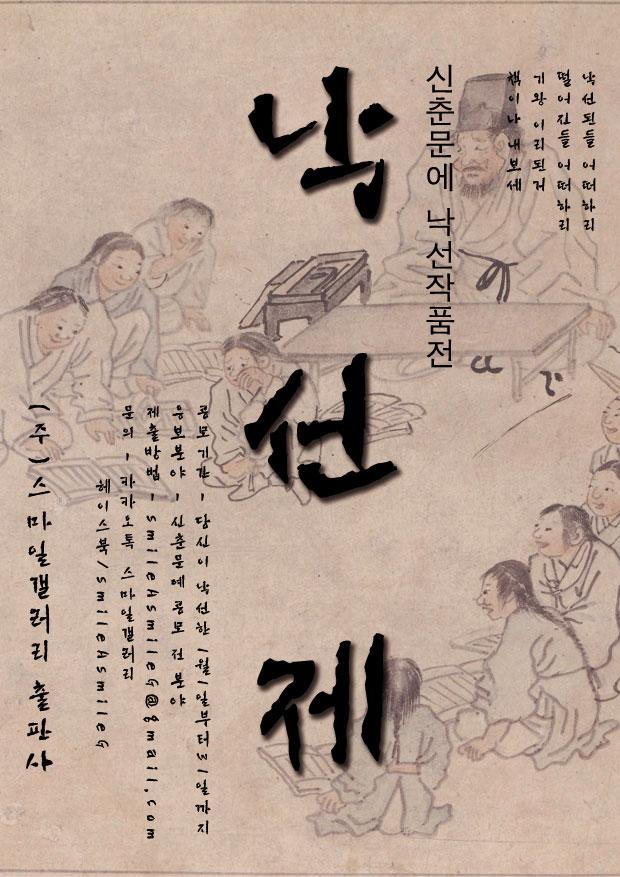 낙선된들 어떠하리
떨어진들 어떠하리
기왕 이리된거
책이나 내보세
신춘문에 낙선작품전
낙선제
공모기간 - 당신이 낙선한 1월1일부터 31일까지
응모분야 - 신춘문예 공모 전분야
제출방법 - smileAsmileG@gmail.com
문의 - 카카오톡 스마일갤러리
페이스북/smileAsmileG
(주)스마일갤러리 출판사